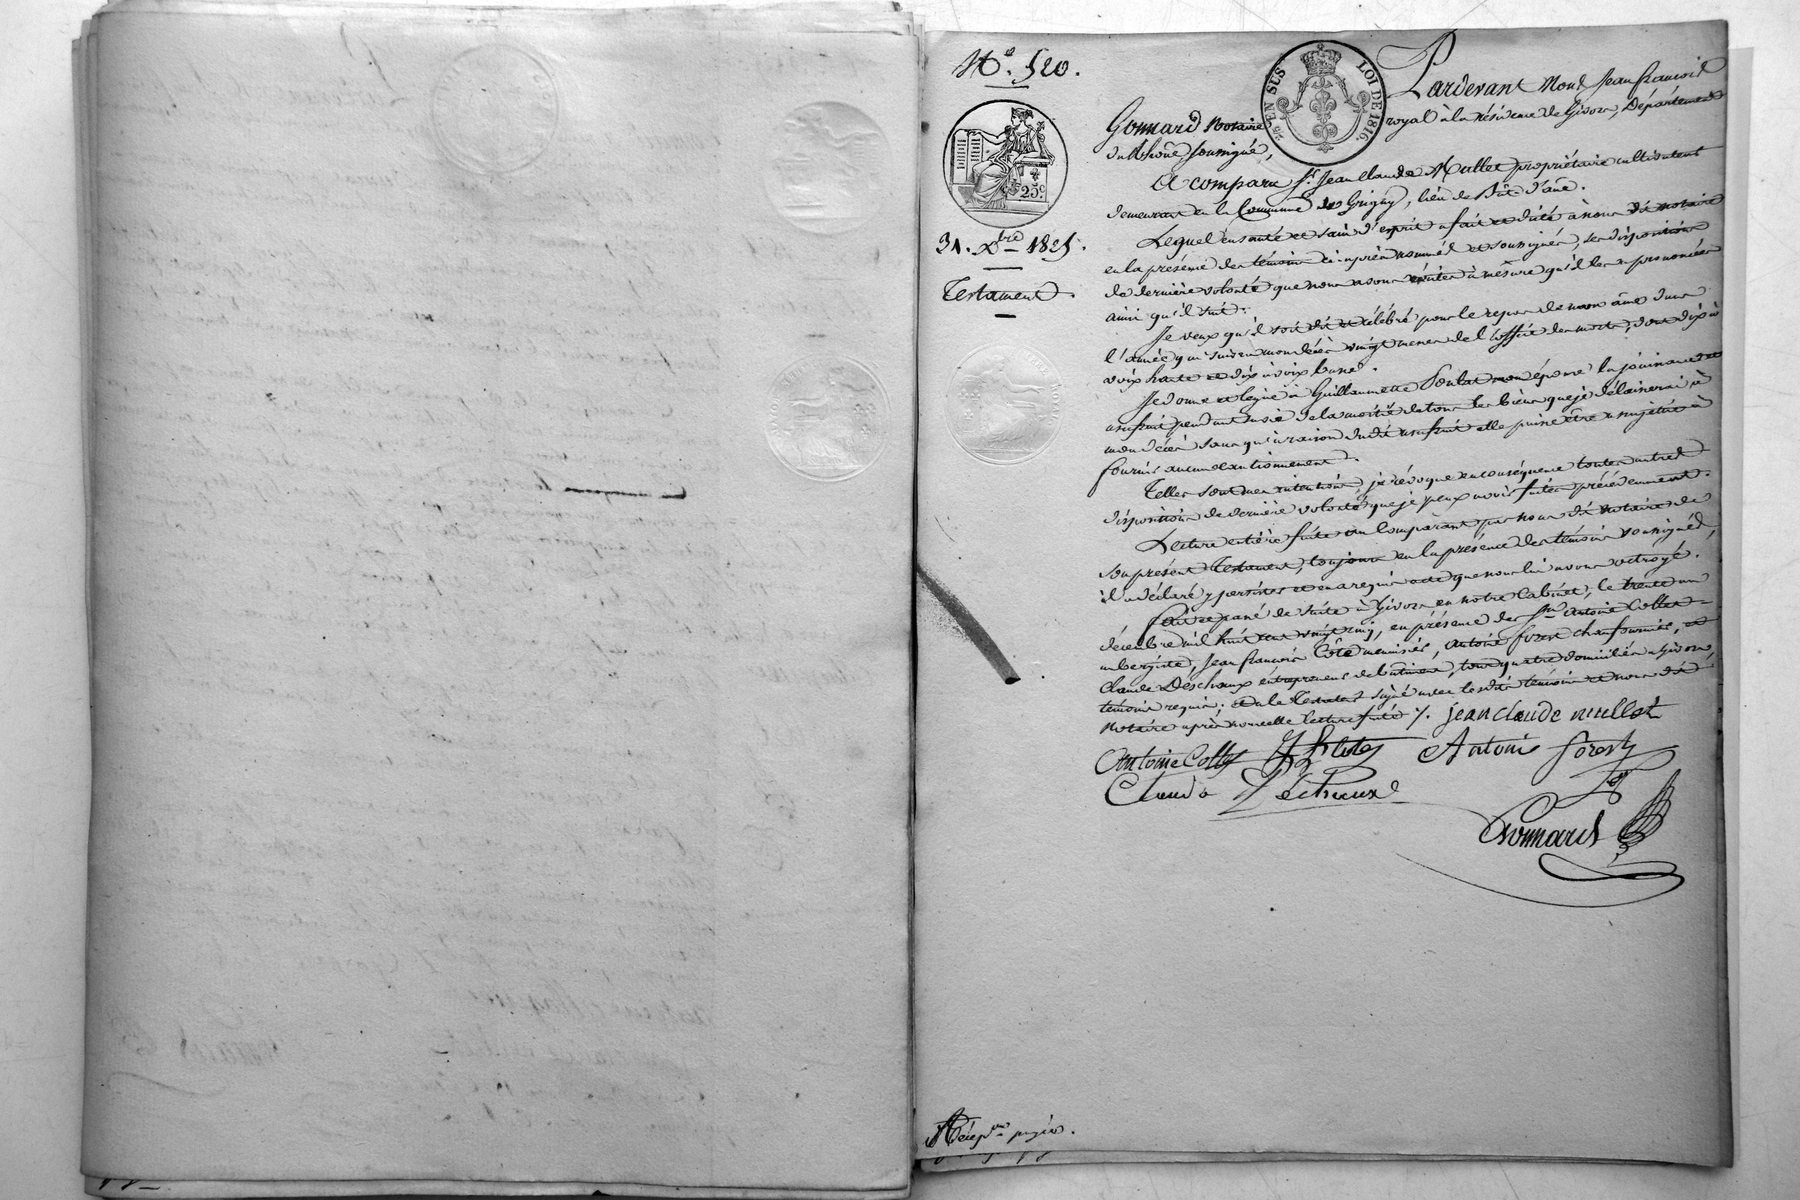 N.o 520.
EN SUS LOI DE 1816.
25c.
31. Xbre 1825.
Testament.
Pardevant Nous Jean françois
Gonnard Notaire royal à la résidence de Givors, Département
du Rhône soussigné,
A comparu Sr. Jean Claude Mullet propriétaire cultivateur
demeurant en la Commune de Grigny, lieu de
Lequel en santé et sain d'esprit a fait et dicté à nous dit notaire
en la présence des témoins ci-après nommés et soussignés, ses dispositions
de dernière volonté que nous avons écrites à mesure qu'il les a prononcées
ainsi qu'il suit:
Je veux qu'il soit dit et célébré pour le repos de mon âme dans
l'année qui suivra mon décès vingt messes de l'office des morts, dont dix à
voix haute et dix à voix basse.
Je donne et lègue à Guillaumette mon épouse la jouissance et
usufruit pendant sa vie de la moitié de tous les biens que je délaisserai à
mon décès sans qu'à raison dudit usufruit elle puisse être assujétie à
fournir aucun cautionnement.
Telles sont mes intentions, je révoque en conséquence toutes autres
dispositions de dernière volonté que je peux avoir faites précédemment.
Lecture entière faite au Comparant par nous dit notaire de
son présent Testament, toujours en la présence des témoins soussignés,
il a déclaré y persister et en a requis acte que nous lui avons octroyé.
Fait et passé de suite à Givors en notre Cabinet, le trente un
décembre mil huit cent vingt cinq, en présence des Srs Antoine Collet
aubergiste, Jean françois Côte menuisier, Antoine forest chaufournier, et
Claude Deschaux entrepreneur de bâtimens, tous quatre domiciliés à Givors,
témoins requis; et a le Testateur signé avec lesdits témoins et nous dit
Notaire après nouvelle lecture faite /. jean claude mullet
Antoine Collet Antoine forest
Claude Dechaux
Gonnard